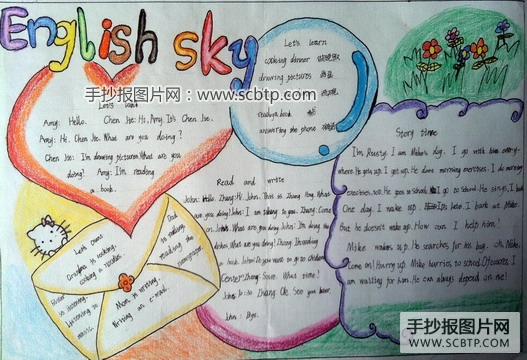 English sky
手抄报图网 www.scbtp.com
Let's talk
Amy: Hello. Chen Jie: Hi, Amy. It's Chen Jie.
Amy: Hi. Chen Jie. What are you doing?
Chen Jie: I'm drawing pictures. What are you
doing? Amy: I'm reading
a book.
Let's learn
cooking dinner
drawing pictures 画画
reading a book
answering the phone
Story time
I'm Rusty. I am Mike's dog. I go with him every-
where. He gets up, I get up. He does morning exercises. I do morning
exercises, too. He goes to school. I go to school. He sings, I
One day. I wake up I bark at Mike.
But he doesn't wake up. How can I help him?
Mike wakes up. He searches for his bag.
Come on! Hurry up! Mike hurries to school. Of course, I
am waiting for him. He can always depend on me!
Read and write
John: Hello. Zhang: Hi. John. This is Zhang Peng. What
are you doing? John: I am talking to you. Zhang: Come
on, John. What are you doing? John: I'm doing the
dishes. What are you doing? Zhang: I'm reading
a book. John: Do you want to go to children's
Center? Zhang: Sure. What time?
John: Zhang: Ok. See you later.
John: Bye.
Let's chant
Grandpa is cooking,
cooking a noodles.
Dad
is reading,
reading the
newspaper
Sister
is listening
listening to
music.
Mom is writing,
Writing an e-mail.
手抄报图片网
WWW.SCBTP.COM